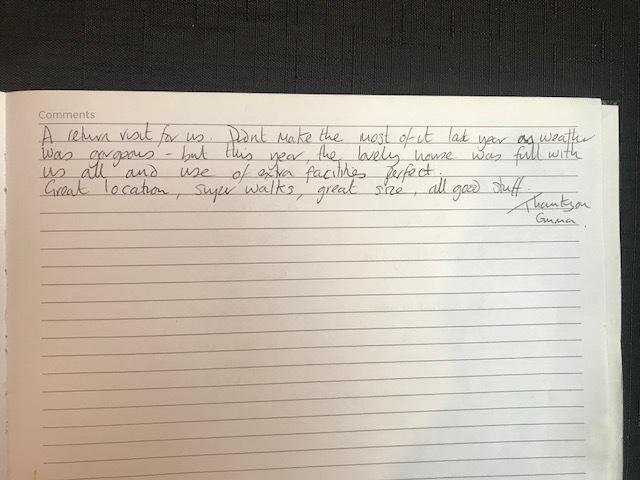 Comments
A return visit for us. Didnt make the most of it last year as weather
was gorgeous - but this year the lovely house was full with
us all and use of extra facilities perfect.
Great location, super walks, great size, all good stuff.
Thankyou
Emma.